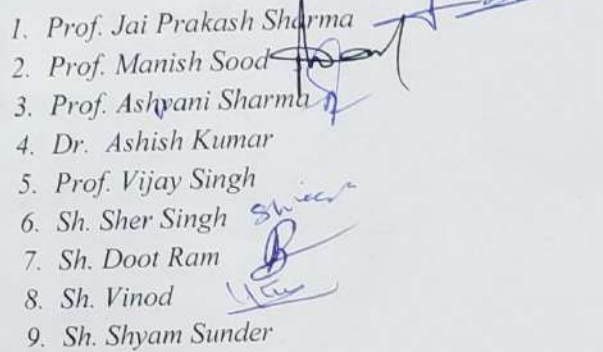 1. Prof. Jai Prakash Sharma
2. Prof. Manish Sood
3. Prof. Ashvani Sharma
4. Dr. Ashish Kumar
5. Prof. Vijay Singh
6. Sh. Sher Singh
7. Sh. Doot Ram
8. Sh. Vinod
9. Sh. Shyam Sunder